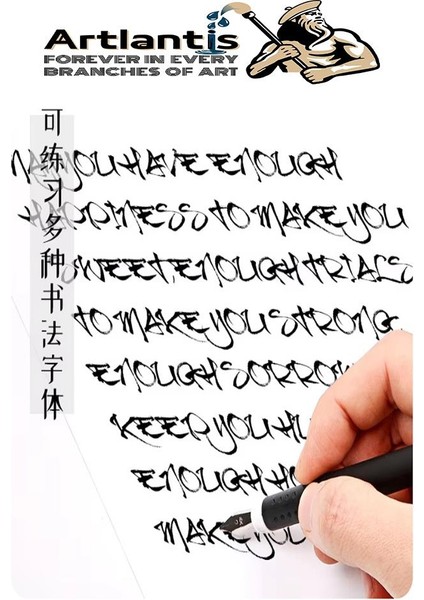 Artlantis
FOREVER IN EVERY
BRANCHES OF ART
可练习多种书法字体
MAY YOU HAVE ENOUGH
HAPPINESS TO MAKE YOU
SWEET,ENOUGH TRIALS
TO MAKE YOU STRONG,
ENOUGH SORROW
KEEP YOU
ENOUGH
MAKE YOU